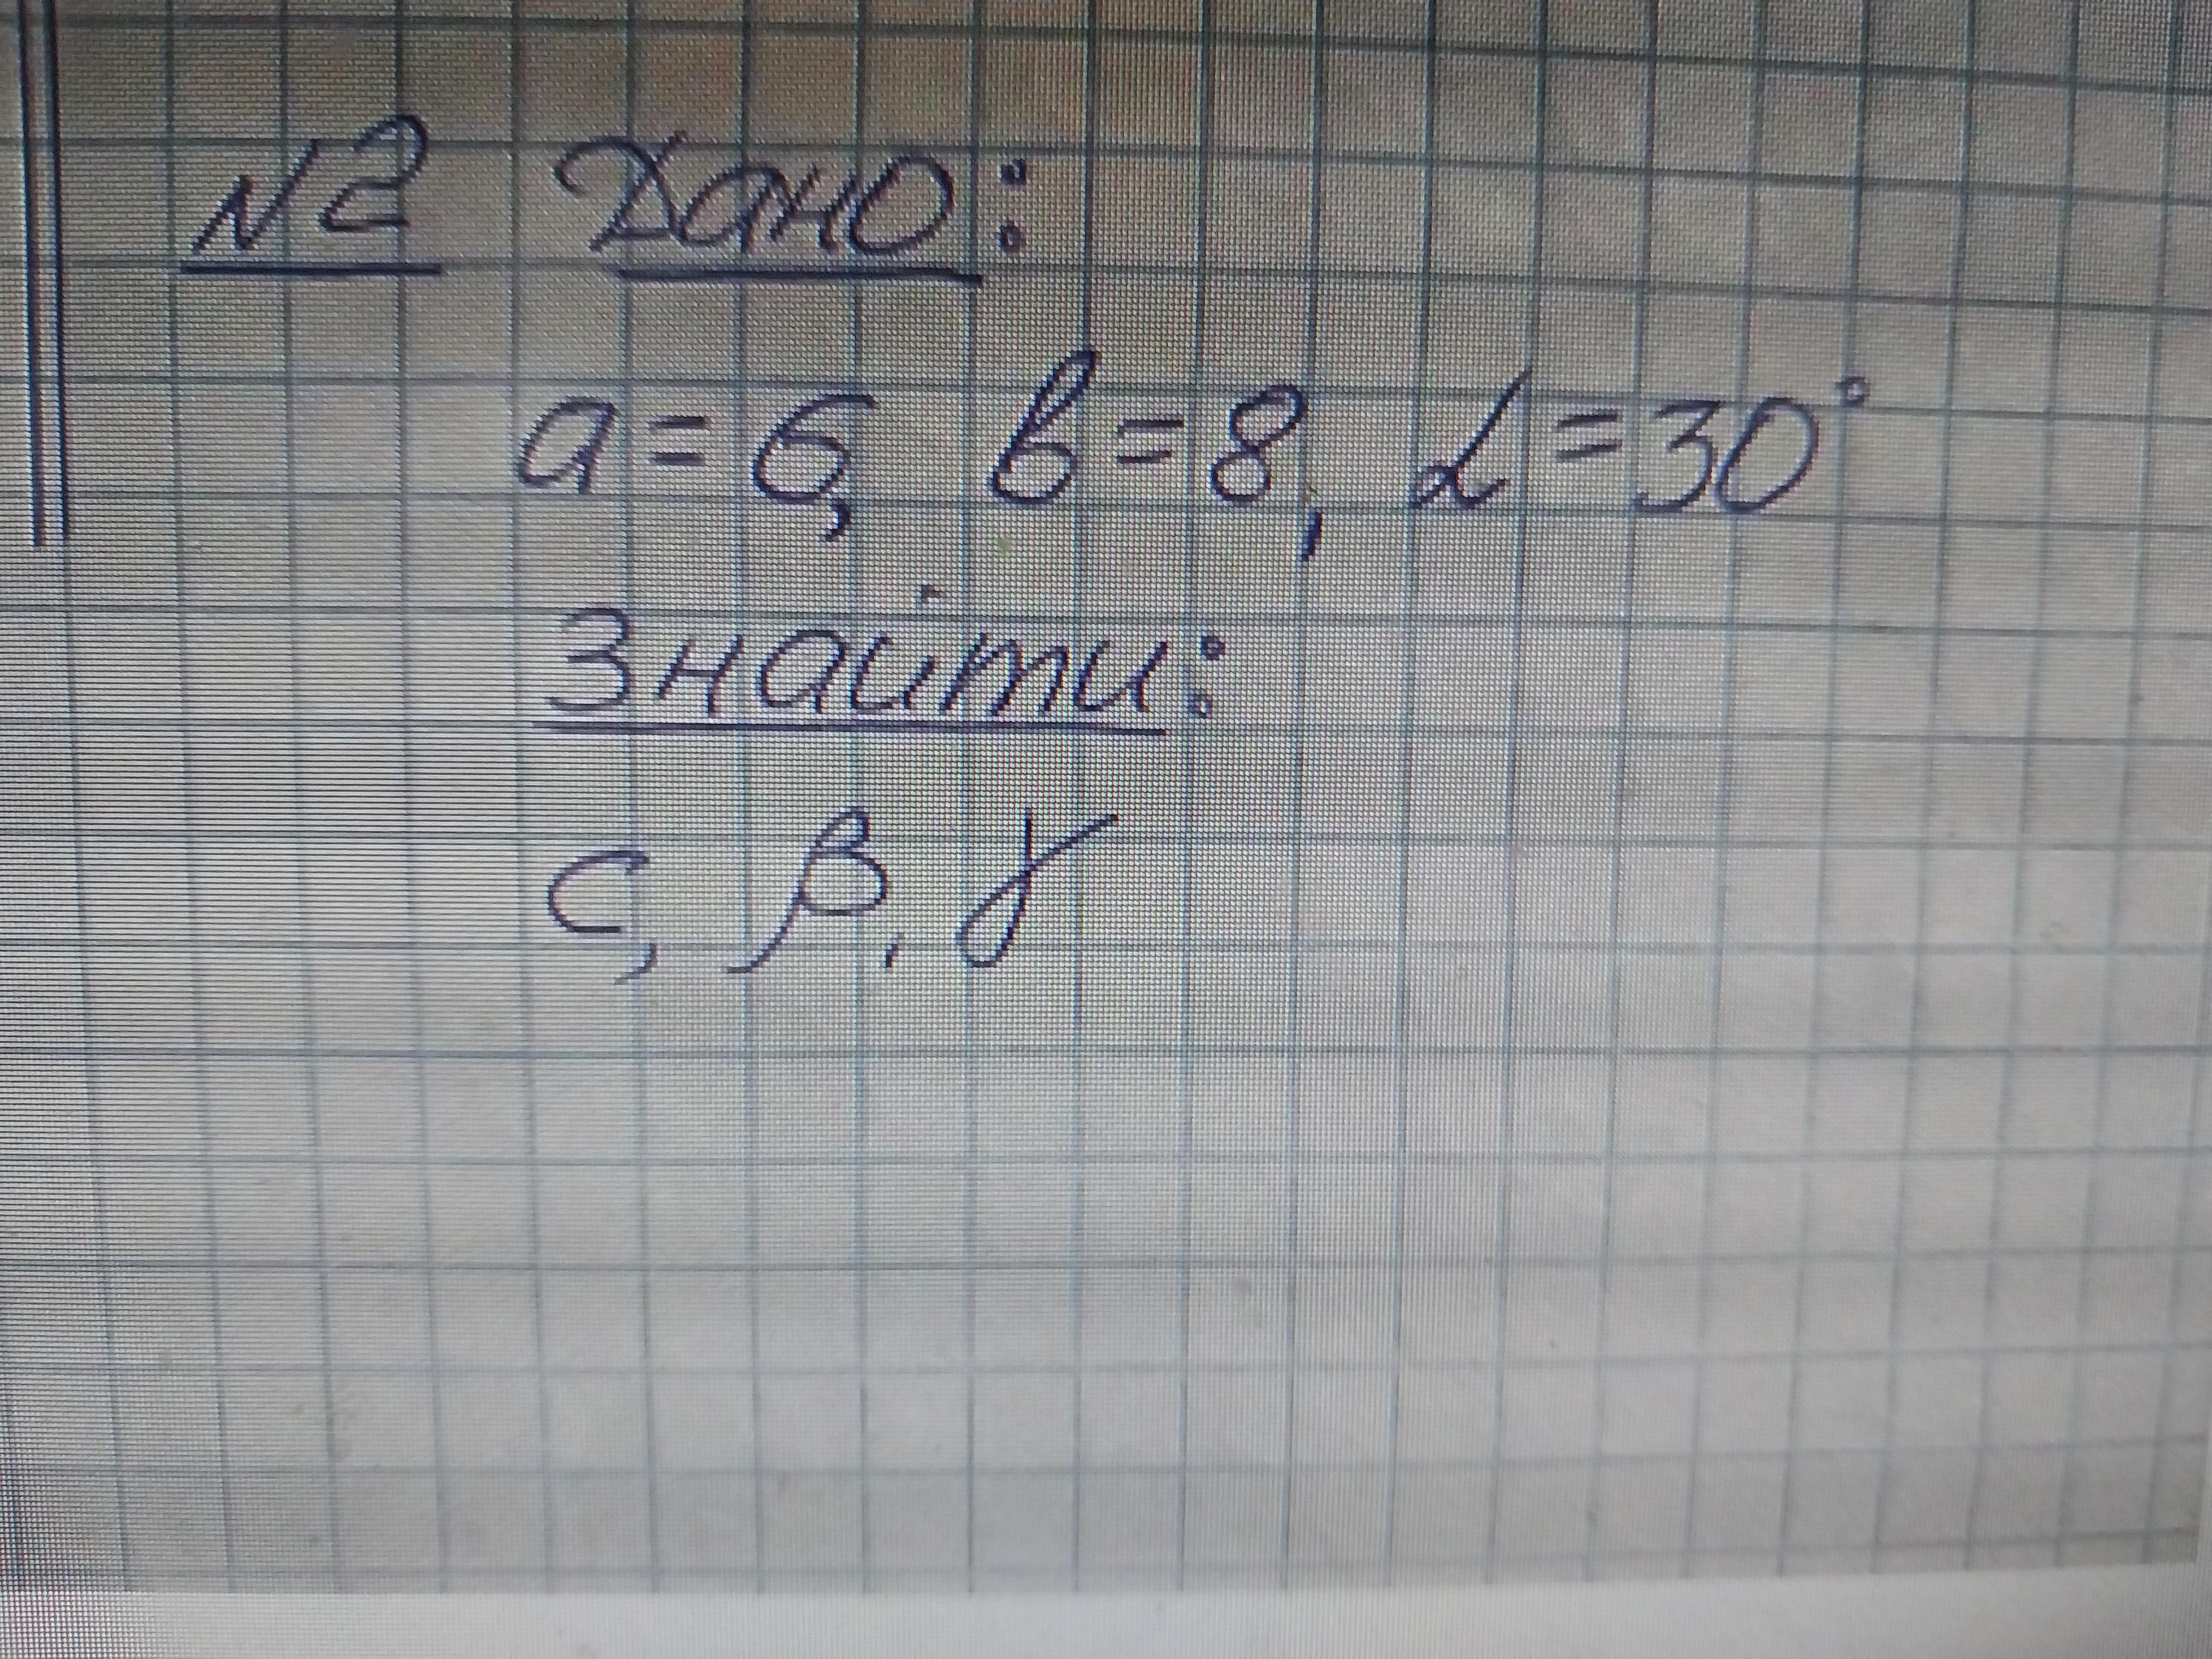 №2 Дано:
a = 6, b = 8, α = 30°
Знайти:
c, β, γ